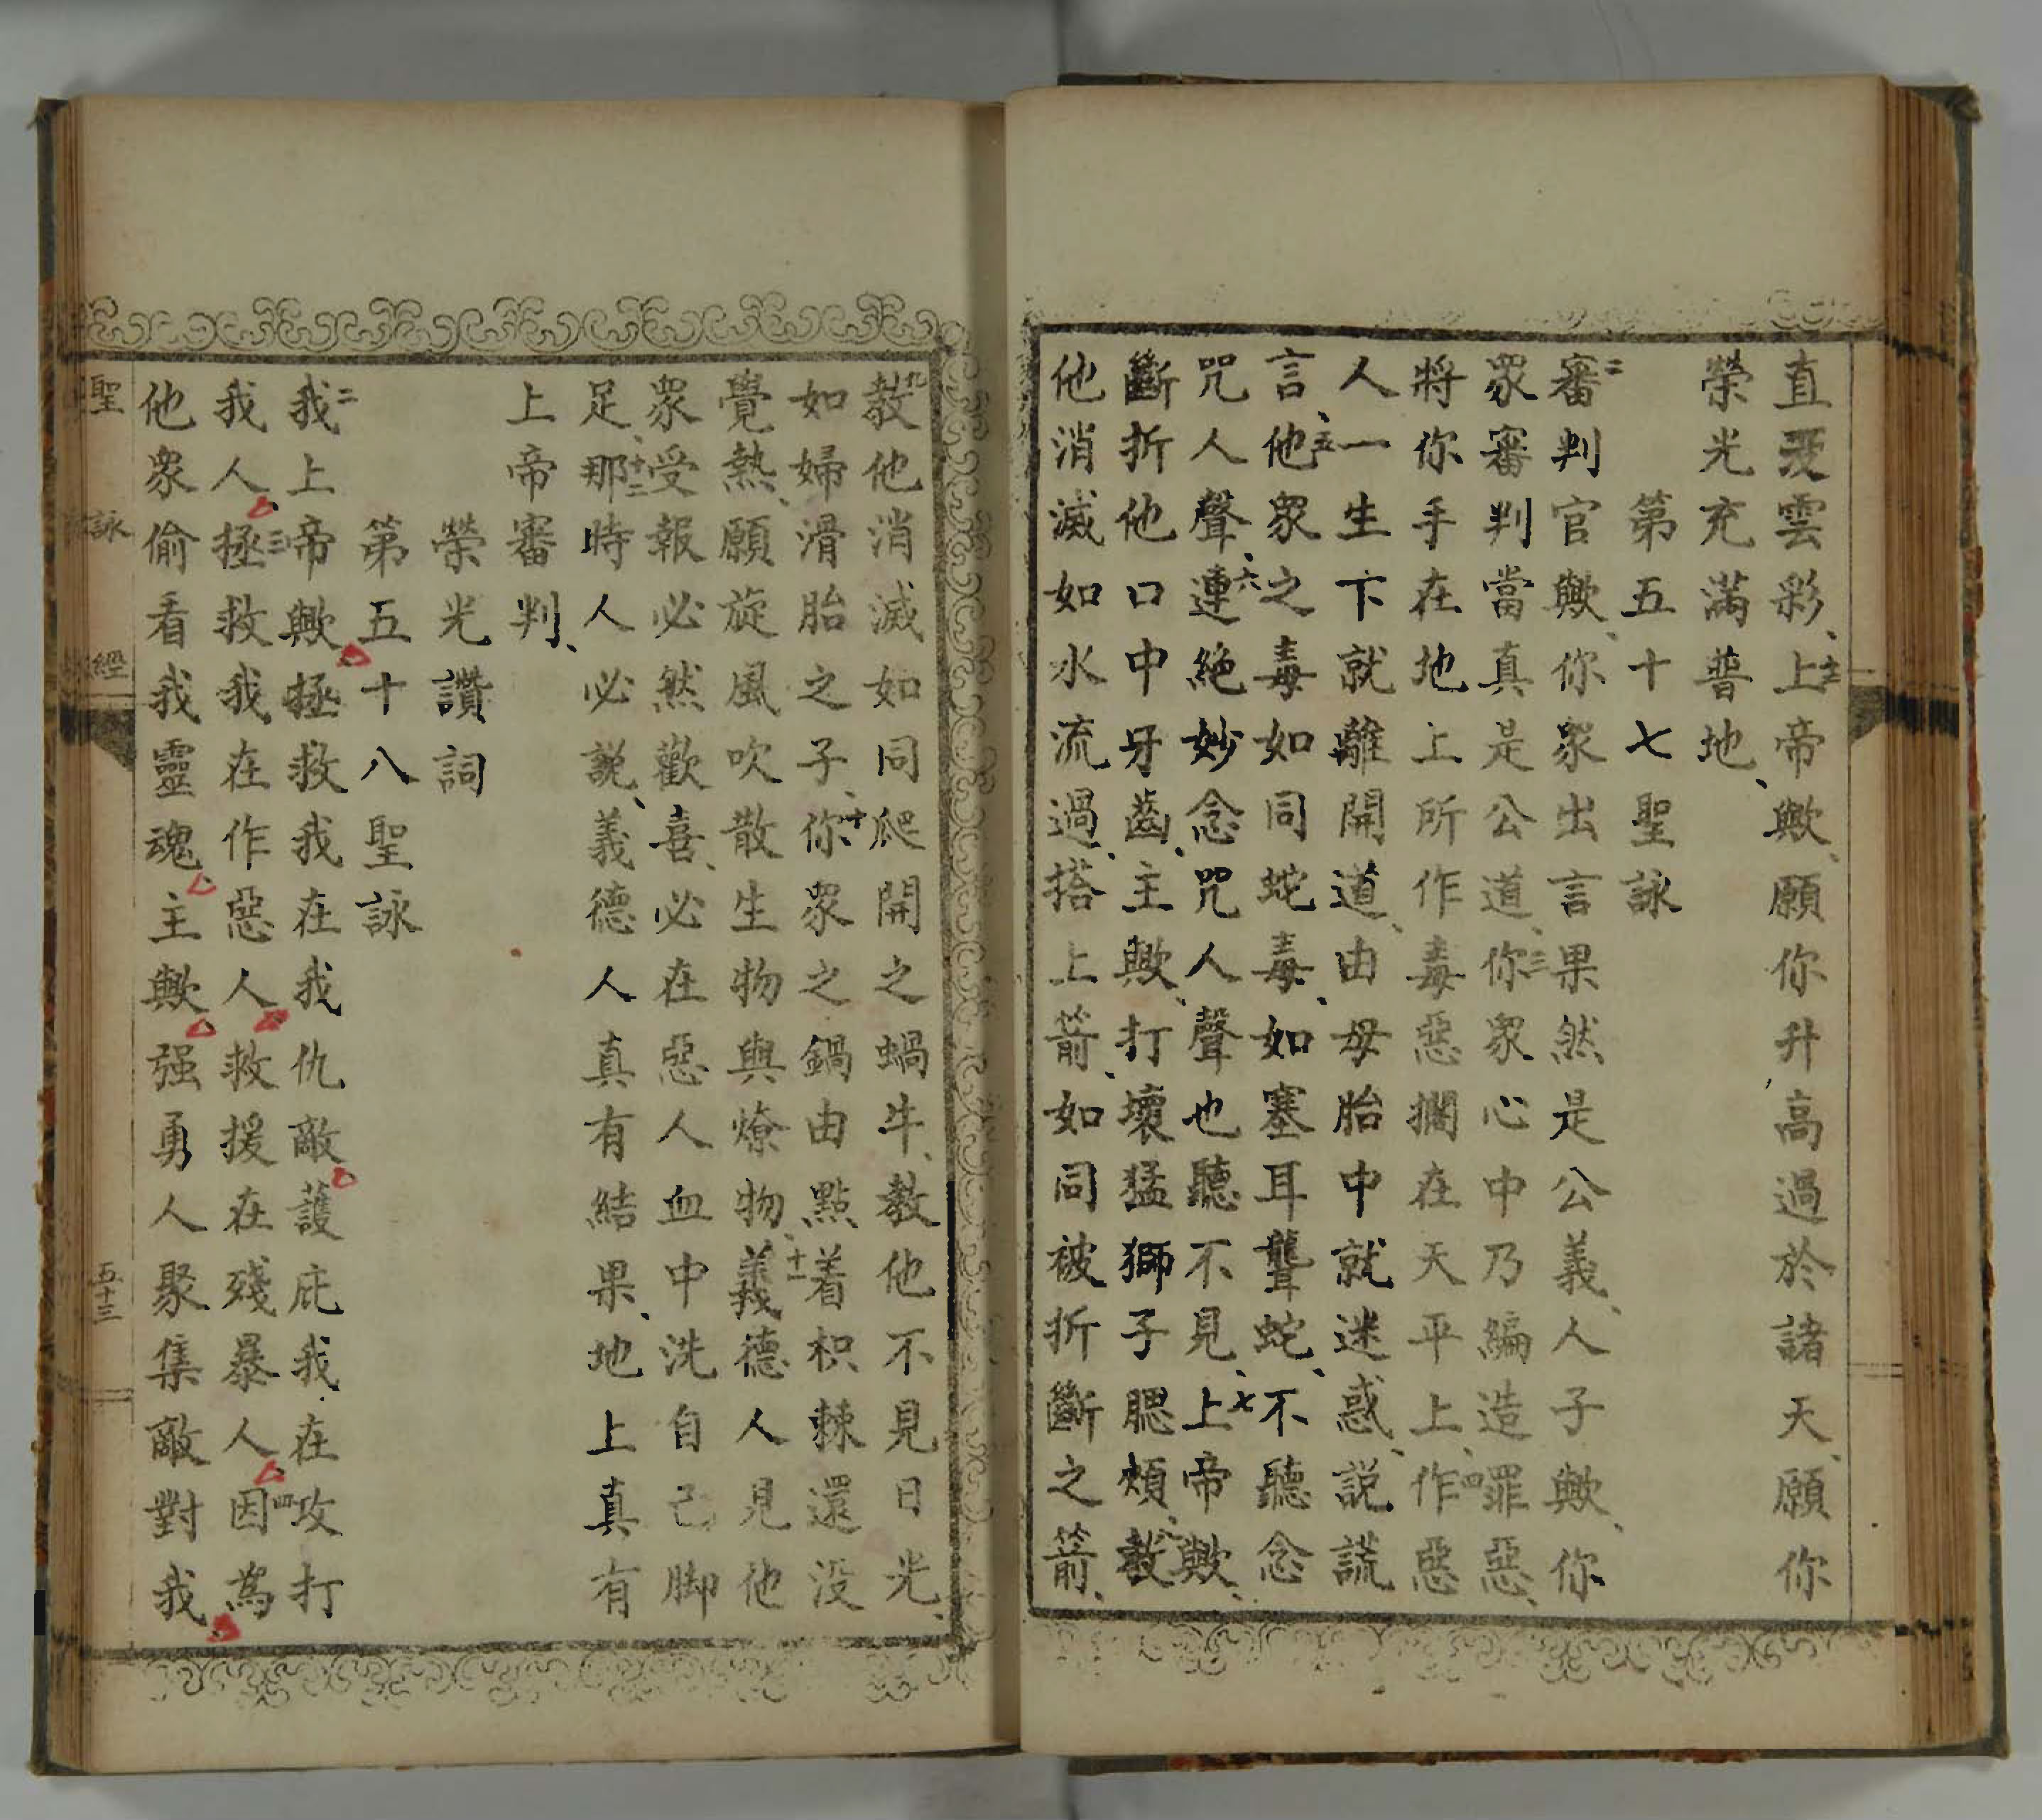 直至雲彩、十二上帝歟、願你升高過於諸天、願你
榮光充滿普地、
第五十七聖詠
二審判官歟、你衆出言果然是公義、人子歟、你
衆審判當真是公道、三你衆心中乃編造罪惡、
將你手在地上所作毒惡擱在天平上、四作惡
人一生下就離開道、由母胎中就迷惑、説謊
言、五他衆之毒如同蛇毒、如塞耳聾蛇、不聽念
咒人聲、六連絕妙念咒人聲也聽不見、七上帝歟、
斷折他口中牙齒、主歟、打壞猛獅子腮頰、八教
他消滅如水流過、搭上箭、如同被折斷之箭、
九教他消滅如同爬開之蝸牛、教他不見日光、
如婦滑胎之子、十你衆之鍋由點着枳棘還没
覺熱、願旋風吹散生物與燎物、十一義德人見他
衆受報必然歡喜、必在惡人血中洗自己脚
足、十二那時人必説、義德人真有結果、地上真有
上帝審判、
榮光讚詞
第五十八聖詠
二我上帝歟拯救我在我仇敵護庇我在攻打
我人三拯救我在作惡人救援在殘暴人四因爲
他衆偷看我靈魂主歟强勇人聚集敵對我
聖詠經
五十三